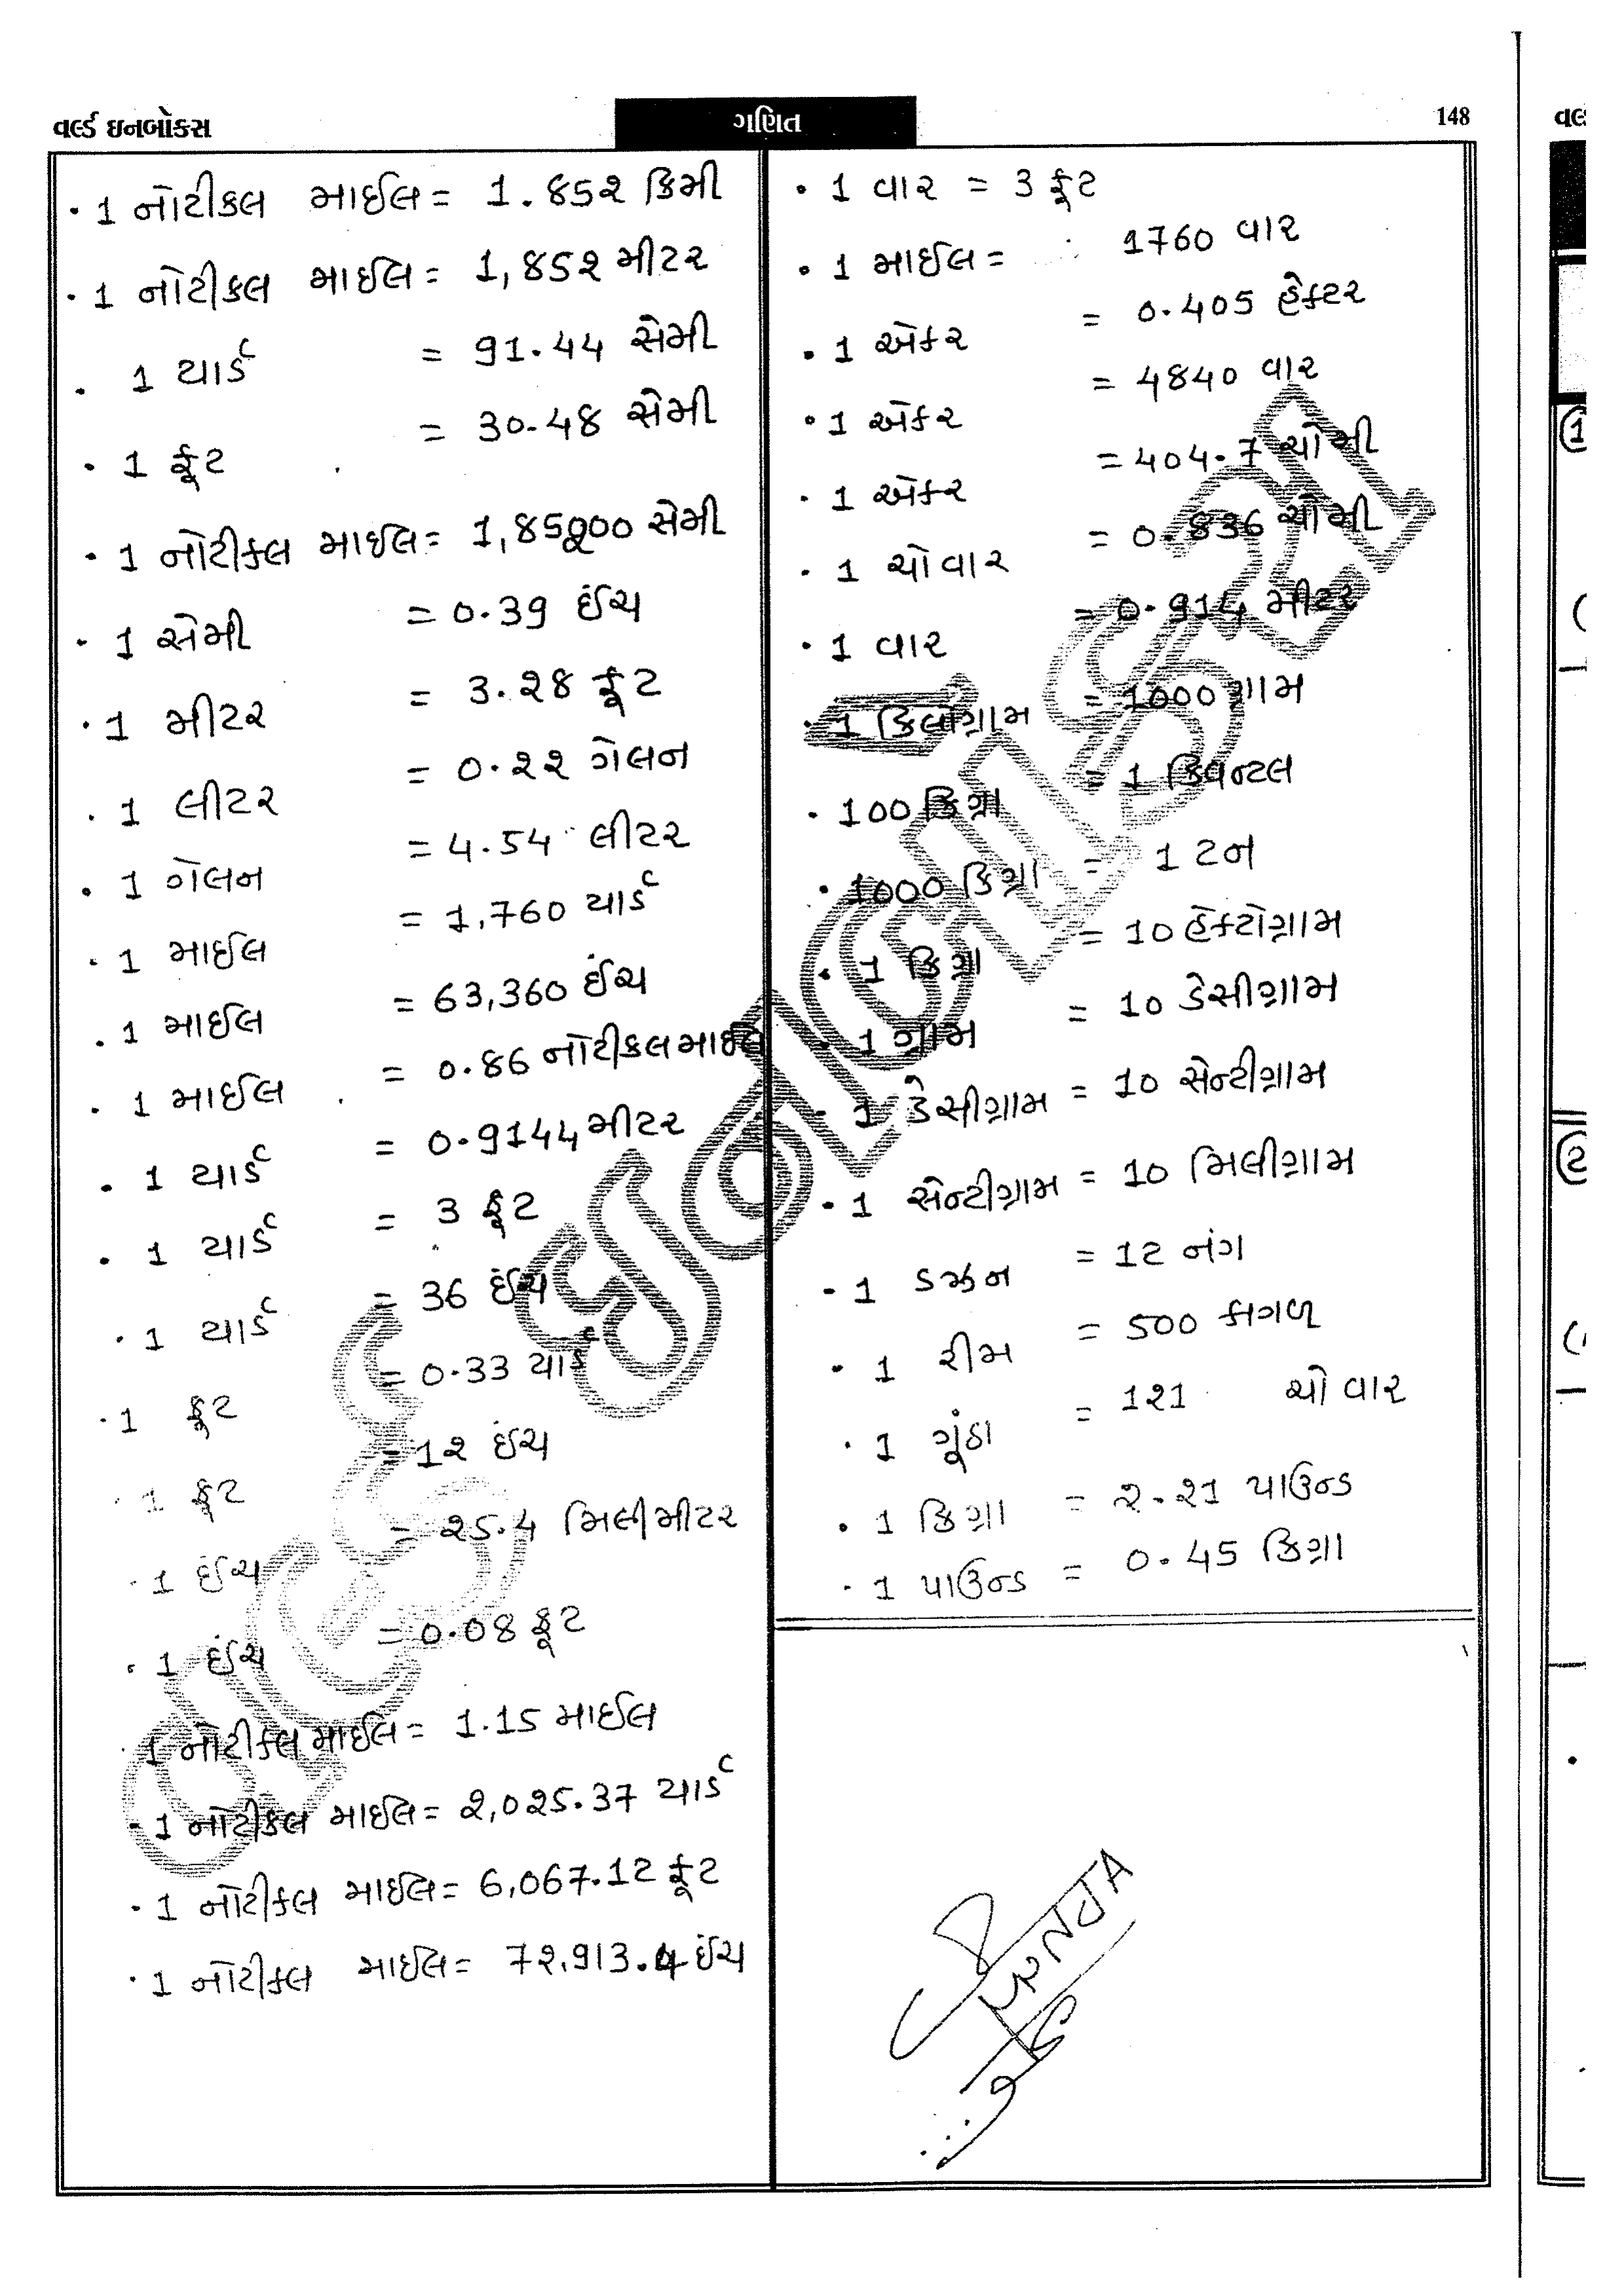 વર્લ્ડ ઇનબોક્સ
ગણિત
148
• 1 નોટીકલ માઈલ = 1.85૨ કિમી
• 1 નોટીકલ માઈલ = 1,85૨ મીટર
• 1 યાર્ડ = 91.44 સેમી
• 1 ફૂટ = 30.48 સેમી
• 1 નોટીકલ માઈલ = 1,85૨00 સેમી
• 1 સેમી = 0.39 ઈંચ
• 1 મીટર = 3.૨8 ફૂટ
• 1 લીટર = 0.૨૨ ગેલન
• 1 ગેલન = 4.54 લીટર
• 1 માઈલ = 1,760 યાર્ડ
• 1 માઈલ = 63,360 ઈંચ
• 1 માઈલ = 0.86 નોટીકલ માઈલ
• 1 યાર્ડ = 0.9144 મીટર
• 1 યાર્ડ = 3 ફૂટ
• 1 યાર્ડ = 36 ઈંચ
• 1 ફૂટ = 0.33 યાર્ડ
• 1 ફૂટ = 1૨ ઈંચ
• 1 ઈંચ = ૨5.4 મિલીમીટર
• 1 ઈંચ = 0.08 ફૂટ
• 1 નોટીકલ માઈલ = 1.15 માઈલ
• 1 નોટીકલ માઈલ = ૨,0૨5.37 યાર્ડ
• 1 નોટીકલ માઈલ = 6,067.12 ફૂટ
• 1 નોટીકલ માઈલ = 7૨,913.4 ઈંચ
• 1 વાર = 3 ફૂટ
• 1 માઈલ = 1760 વાર
• 1 એકર = 0.405 હેક્ટર
• 1 એકર = 4840 વાર
• 1 એકર = 404.7 ચોમી
• 1 ચોવાર = 0.836 ચોમી
• 1 વાર = 0.914 મીટર
• 1 કિલોગ્રામ = 1000 ગ્રામ
• 100 કિગ્રા = 1 ક્વિન્ટલ
• 1000 કિગ્રા = 1 ટન
• 1 કિગ્રા = 10 હેક્ટોગ્રામ
• 1 ગ્રામ = 10 ડેસીગ્રામ
• 1 ડેસીગ્રામ = 10 સેન્ટીગ્રામ
• 1 સેન્ટીગ્રામ = 10 મિલીગ્રામ
• 1 ડઝન = 12 નંગ
• 1 રીમ = 500 કાગળ
• 1 ગૂંઠા = 1૨1 ચો વાર
• 1 કિગ્રા = ૨.૨1 પાઉન્ડ
• 1 પાઉન્ડ = 0.45 કિગ્રા